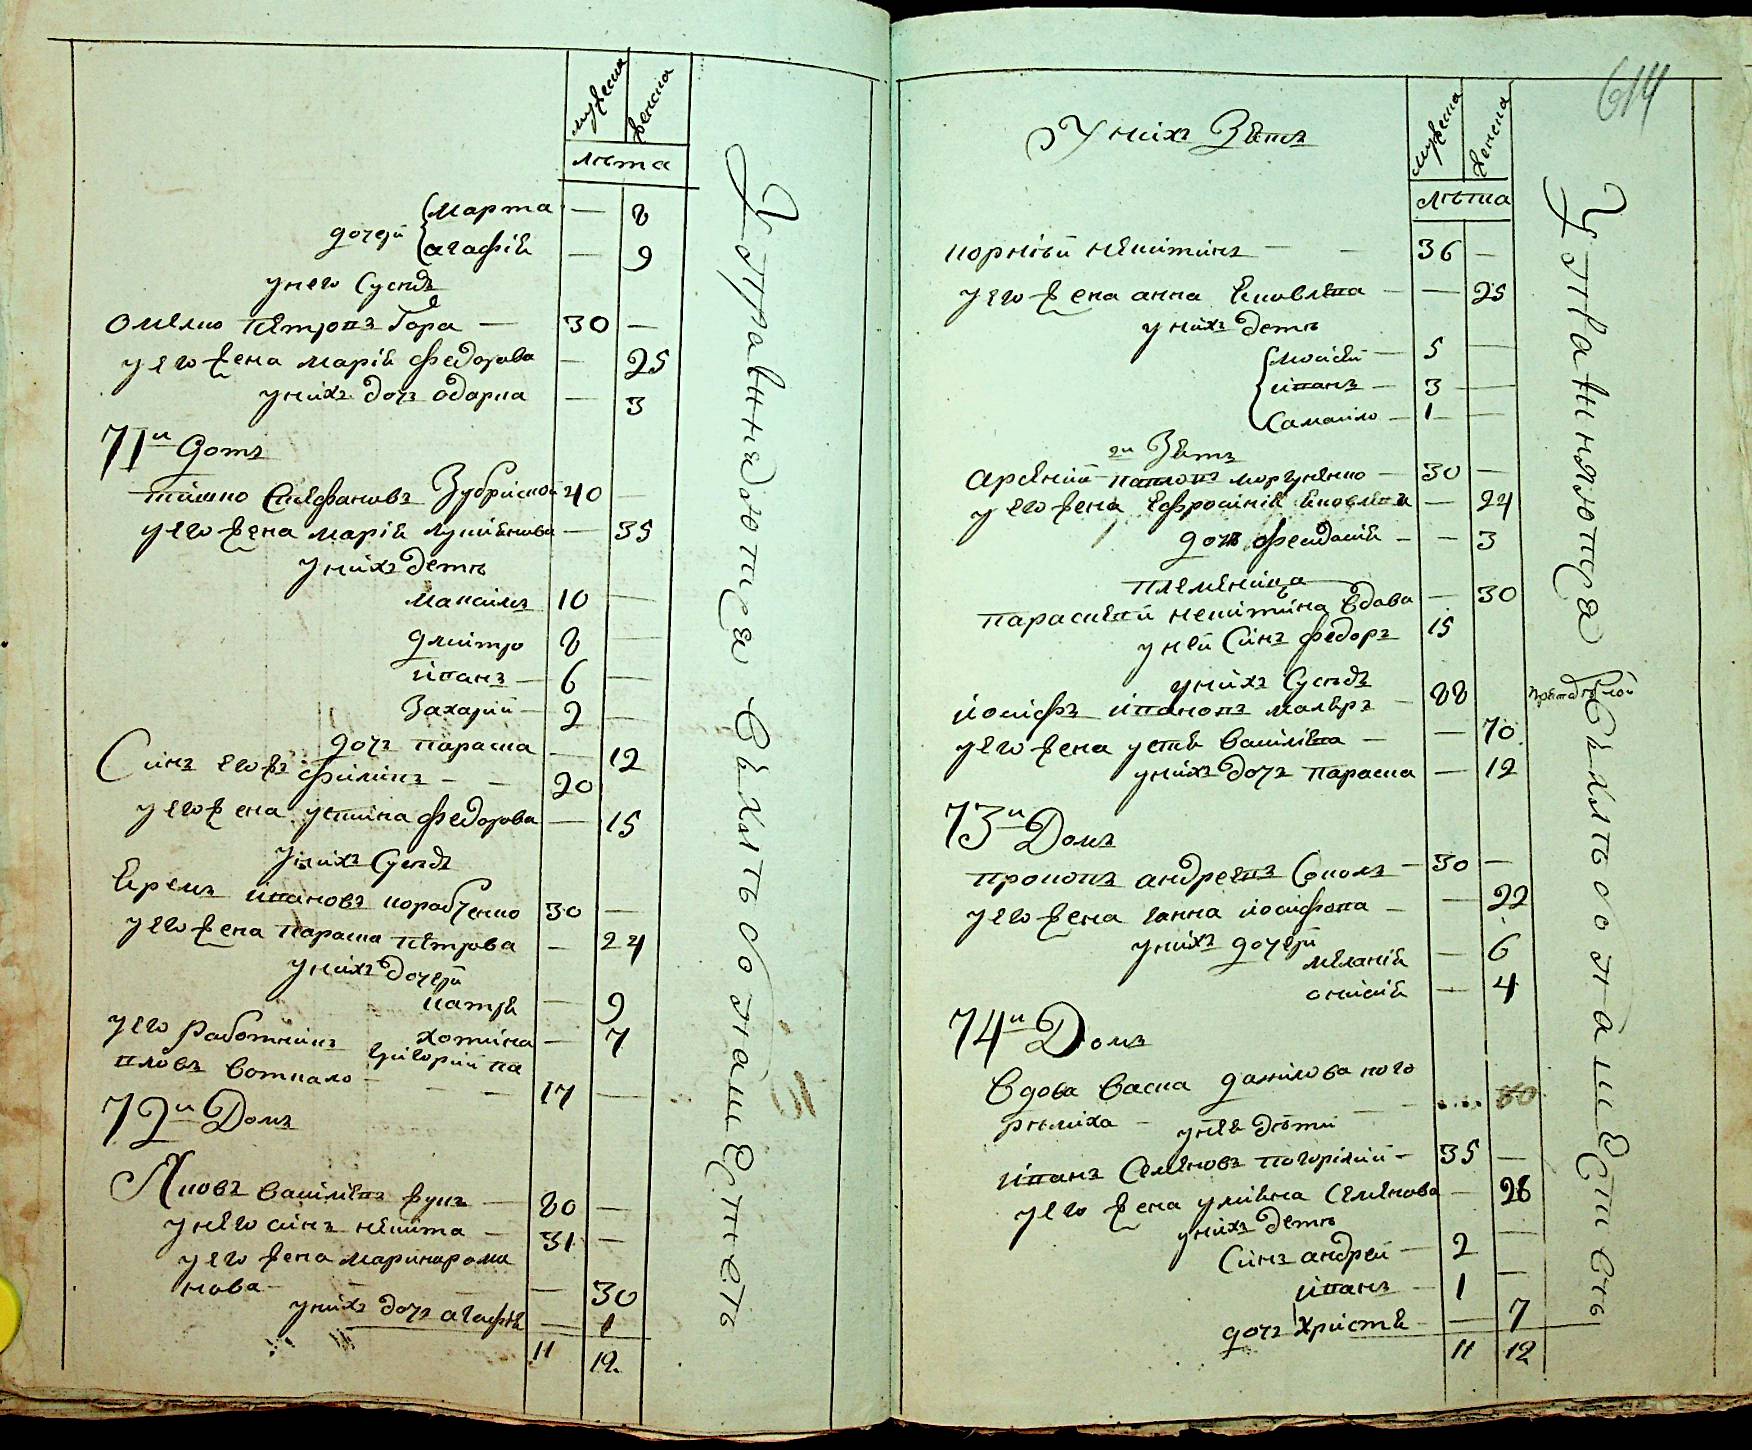 мужеска
женска
лѣта
дочери
марта — 8
агафія — 9
у него сусѣдъ
омелко петровъ Гора — 30 —
у его жена марія федорова — 25
у нихъ дочъ одарка — 3
71й Домъ
тишко Стефановъ Зубрискои 40 —
у его жена марія лукіянова — 35
у нихъ дети
михаилъ 10 —
дмитро 8 —
иванъ — 6 —
Захарій — 2 —
дочъ параска — 12
Синъ его же филипъ — 20
у его жена устина федорова — 15
у нихъ Сусѣдъ
Ярема ивановъ корабченко 30 —
у его жена параска петрова — 24
у нихъ дочери
катря — 9
хотина — 7
у его работникъ григорій па
вловъ воткало — 17 —
72й Домъ
Яковъ василіевъ жукъ — 80 —
у него синъ никита — 31 —
у его жена марина рома
нова — 30
у нихъ дочъ агафія — 1
11 12
У отправи нядютця Вся хлѣбопашествѣ
614
У нихъ Зять
мужеска
женска
лѣта
корнѣй никитинъ — 36 —
у его жена анна яковлева — 25
у нихъ дети
моисей — 5 —
иванъ — 3 —
самойло — 1 —
2й Зять
арсеній павловъ моргуненко — 30 —
у его жена ефросинія яковлева — 24
дочъ феидосія — 3
племеница
параскевия никитина вдова — 30
у ней Синъ федоръ 15
у нихъ Сусѣдъ
иосифъ ивановъ маляръ — 88
у его жена устя василіева — 70
у нихъ дочъ параска — 12
73й Домъ
прокопъ андреевъ Соколъ — 30 —
у его жена ганна иосифова — 22
у нихъ дочери
меланія — 6
онисія — 4
74й Домъ
Вдова васка данилова пого
рѣлиха — 80
у нея дѣти
иванъ Семеновъ погорілий — 35 —
у его жена уляна Семенова — 28
у нихъ дети
Синъ андрей — 2 —
иванъ — 1 —
дочъ христя — 7
11 12